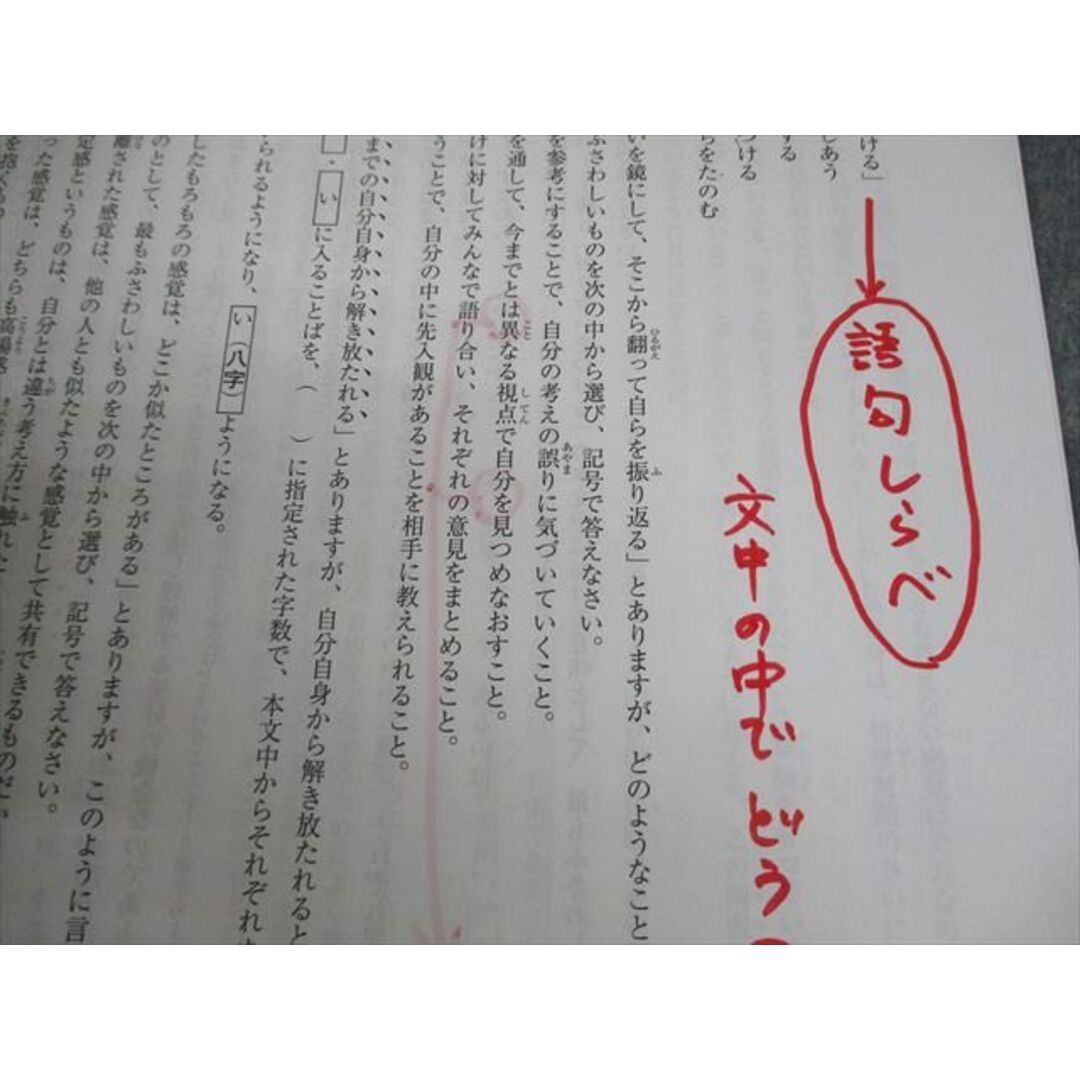 ける」
しあう
する
つける
らをたのむ
語句しらべ
文中の中でどう
いを鏡にして、そこから翻って自らを振り返る」とありますが、どのようなこと
ふさわしいものを次の中から選び、記号で答えなさい。
を参考にすることで、自分の考えの誤りに気づいていくこと。
を通して、今までとは異なる視点で自分を見つめなおすこと。
けに対してみんなで語り合い、それぞれの意見をまとめること。
うことで、自分の中に先入観があることを相手に教えられること。
までの自分自身から解き放たれる」とありますが、自分自身から解き放たれると
・いに入ることばを、（　）に指定された字数で、本文中からそれぞれ
られるようになり、い（八字）ようになる。
したもろもろの感覚は、どこか似たところがある」とありますが、このように言
のとして、最もふさわしいものを次の中から選び、記号で答えなさい。
離された感覚は、他の人とも似たような感覚として共有できるものだ
定感というものは、自分とは違う考え方に触れた
った感覚は、どちらも高揚感